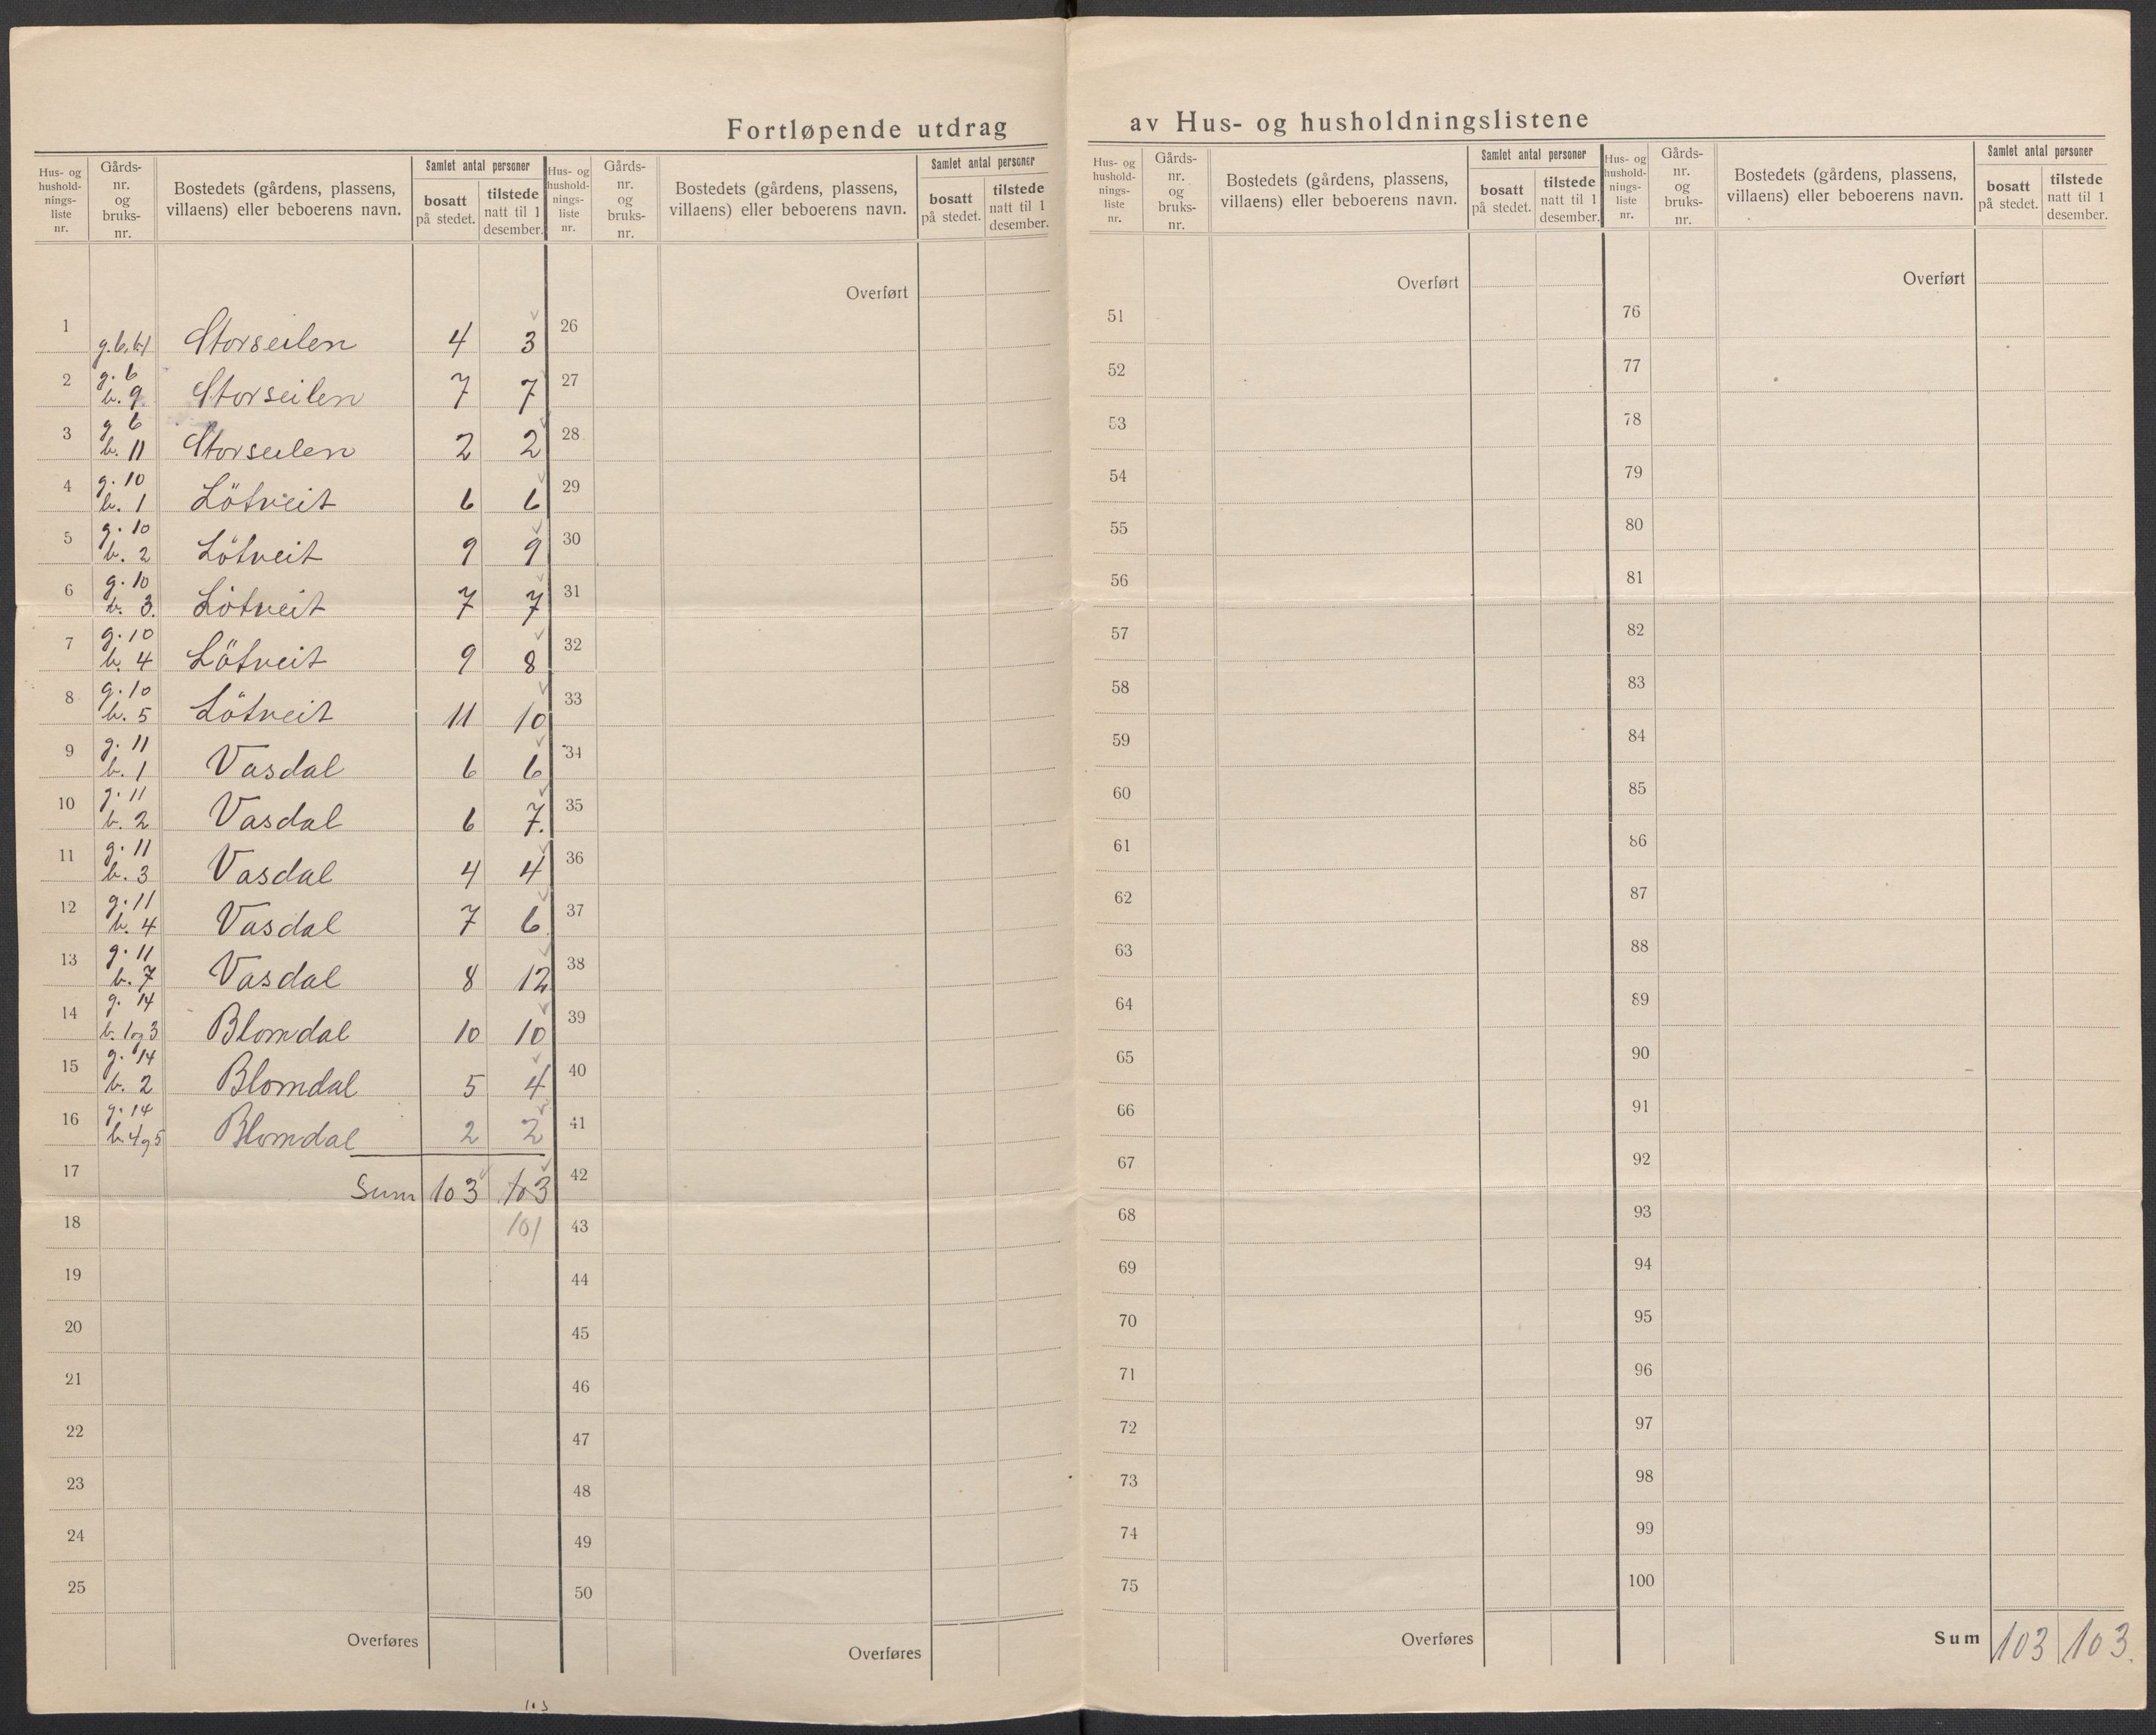 Fortløpende utdrag av Hus- og husholdningslistene
Hus- og hushold- nings- liste nr. | Gårds- nr. og bruks- nr. | Bostedets (gårdens, plassens, villaens) eller beboerens navn. | Samlet antal personer | bosatt på stedet. | tilstede natt til 1 desember.
Hus- og hushold- nings- liste nr. | Gårds- nr. og bruks- nr. | Bostedets (gårdens, plassens, villaens) eller beboerens navn. | Samlet antal personer | bosatt på stedet. | tilstede natt til 1 desember.
Hus- og hushold- nings- liste nr. | Gårds- nr. og bruks- nr. | Bostedets (gårdens, plassens, villaens) eller beboerens navn. | Samlet antal personer | bosatt på stedet. | tilstede natt til 1 desember.
Hus- og hushold- nings- liste nr. | Gårds- nr. og bruks- nr. | Bostedets (gårdens, plassens, villaens) eller beboerens navn. | Samlet antal personer | bosatt på stedet. | tilstede natt til 1 desember.
1 g. 6, b. 1 Storseilen 4 3
2 g. 6 b. 9 Storseilen 7 7
3 g 6 b. 11 Storseilen 2 2
4 g. 10 b. 1 Lötveit 6 6
5 g. 10 b. 2 Lötveit 9 9
6 g. 10 b. 3. Lötveit 7 7
7 g. 10 b. 4 Lötveit 9 8
8 g. 10 b. 5 Lötveit 11 10
9 g. 11 b. 1 Vasdal 6 6
10 g. 11 b. 2 Vasdal 6 7.
11 g. 11 b. 3 Vasdal 4 4
12 g. 11 b. 4 Vasdal 7 6
13 g. 11 b. 7 Vasdal 8 12
14 g. 14 b. 1 og 3 Blomdal 10 10
15 g. 14 b. 2 Blomdal 5 4
16 g. 14 b 4 og 5 Blomdal 2 2
17 Sum 103 103
18 101
19
20
21
22
23
24
25
Overføres
103
Overført
26
27
28
29
30
31
32
33
34
35
36
37
38
39
40
41
42
43
44
45
46
47
48
49
50
Overføres
Overført
51
52
53
54
55
56
57
58
59
60
61
62
63
64
65
66
67
68
69
70
71
72
73
74
75
Overføres
Overført
76
77
78
79
80
81
82
83
84
85
86
87
88
89
90
91
92
93
94
95
96
97
98
99
100
Sum 103 103.